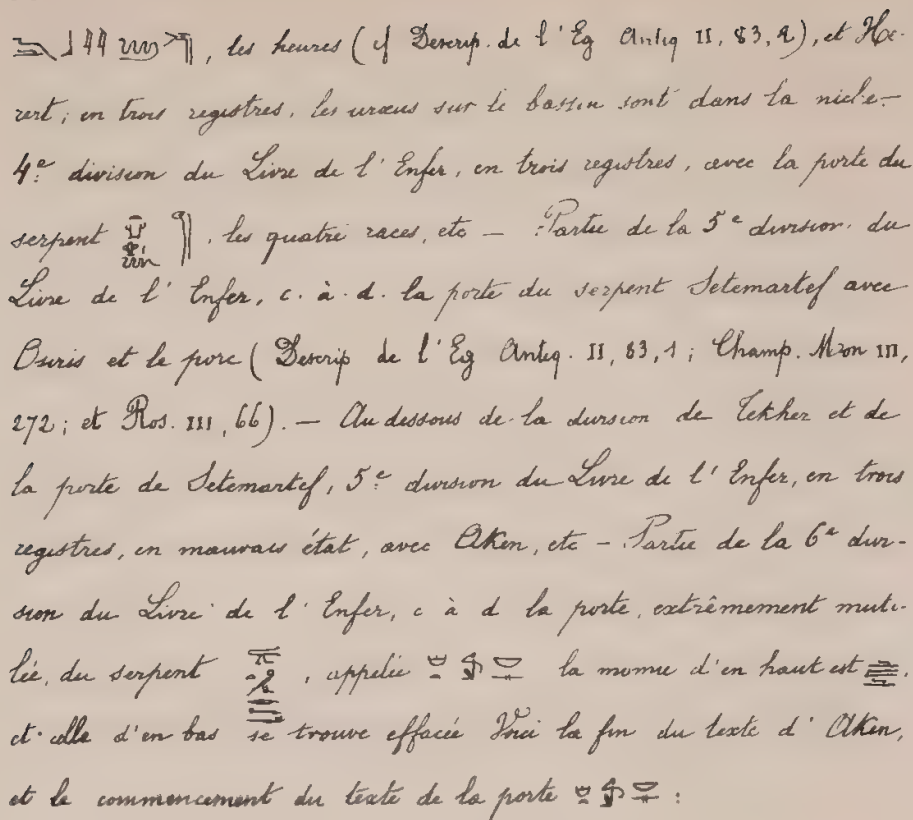 , les heures (cf Descrip. de l'Eg Antiq II, 83, 2), et He-
rert; en trois registres, les uræus sur le bassin sont dans la niche –
4e division du Livre de l'Enfer, en trois registres, avec la porte du
serpent , les quatre races, etc – Partie de la 5e division du
Livre de l'Enfer, c. à. d. la porte du serpent Setemartef avec
Osiris et le porc (Descrip de l'Eg Antiq. II, 83, 1; Champ. Mon III,
272; et Ros. III, 66). – Au dessous de la division de Tekher et de
la porte de Setemartef, 5e division du Livre de l'Enfer, en trois
registres, en mauvais état, avec Aken, etc – Partie de la 6e divi-
sion du Livre de l'Enfer, c à d la porte, extrêmement muti-
lée, du serpent , appelée la momie d'en haut est ,
et celle d'en bas se trouve effacée Voici la fin du texte d'Aken,
et le commencement du texte de la porte :